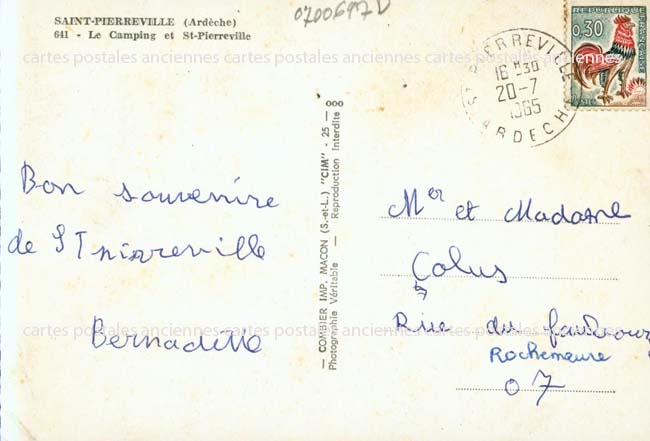 0700697V
SAINT-PIERREVILLE (Ardèche)
641 - Le Camping et St-Pierreville
REPUBLIQUE FRANÇAISE
0,30
POSTES
ST PIERREVILLE
16 H 30
20-7
1965
ARDECHE
cartes postales anciennes cartes postales anciennes cartes postales anciennes cartes postales anciennes
Bon souvenire
de ST Pierreville
Bernadette
— COMBIER IMP. MACON (S.-et-L.) "CIM" - 25 — 000
Photographie Véritable — Reproduction Interdite
Mer et Madame
Colus
Rue du faubourg
Rochemaure
07
cartes postales anciennes cartes postales anciennes cartes postales anciennes cartes postales anciennes